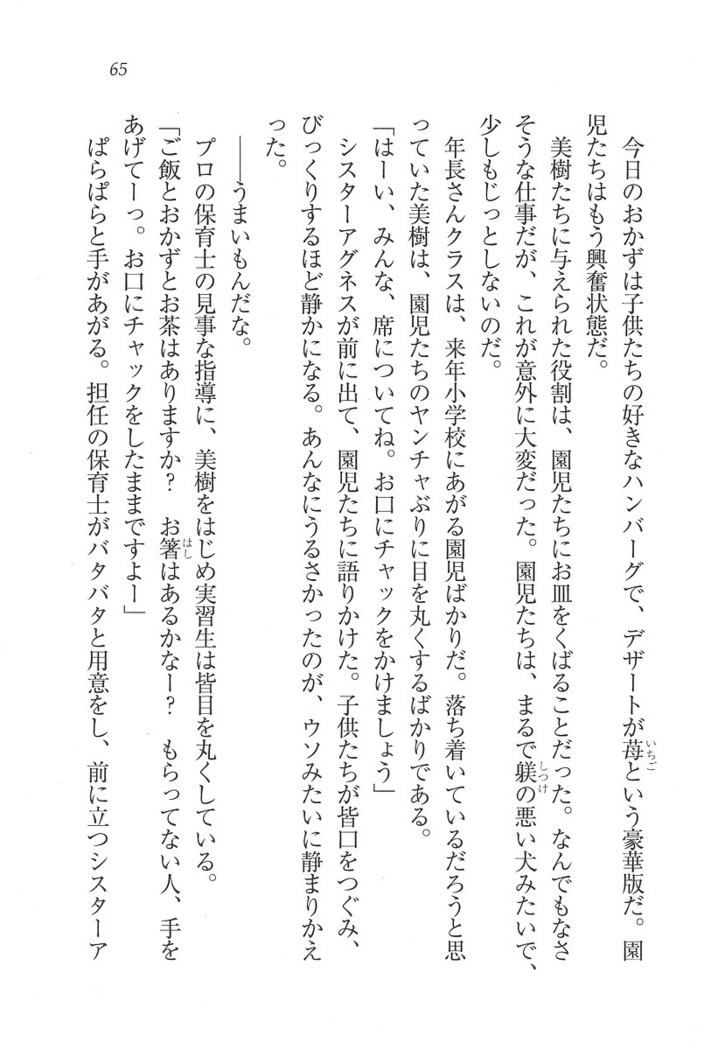 65
今日のおかずは子供たちの好きなハンバーグで、デザートが苺という豪華版だ。園
児たちはもう興奮状態だ。
美樹たちに与えられた役割は、園児たちにお皿をくばることだった。なんでもなさ
そうな仕事だが、これが意外に大変だった。園児たちは、まるで躾の悪い犬みたいで、
少しもじっとしないのだ。
年長さんクラスは、来年小学校にあがる園児ばかりだ。落ち着いているだろうと思
っていた美樹は、園児たちのヤンチャぶりに目を丸くするばかりである。
「はーい、みんな、席についてね。お口にチャックをかけましょう」
シスターアグネスが前に出て、園児たちに語りかけた。子供たちが皆口をつぐみ、
びっくりするほど静かになる。あんなにうるさかったのが、ウソみたいに静まりかえ
った。
――うまいもんだな。
プロの保育士の見事な指導に、美樹をはじめ実習生は皆目を丸くしている。
「ご飯とおかずとお茶はありますか？　お箸はあるかなー？　もらってない人、手を
あげてーっ。お口にチャックをしたままですよー」
ぱらぱらと手があがる。担任の保育士がバタバタと用意をし、前に立つシスターア